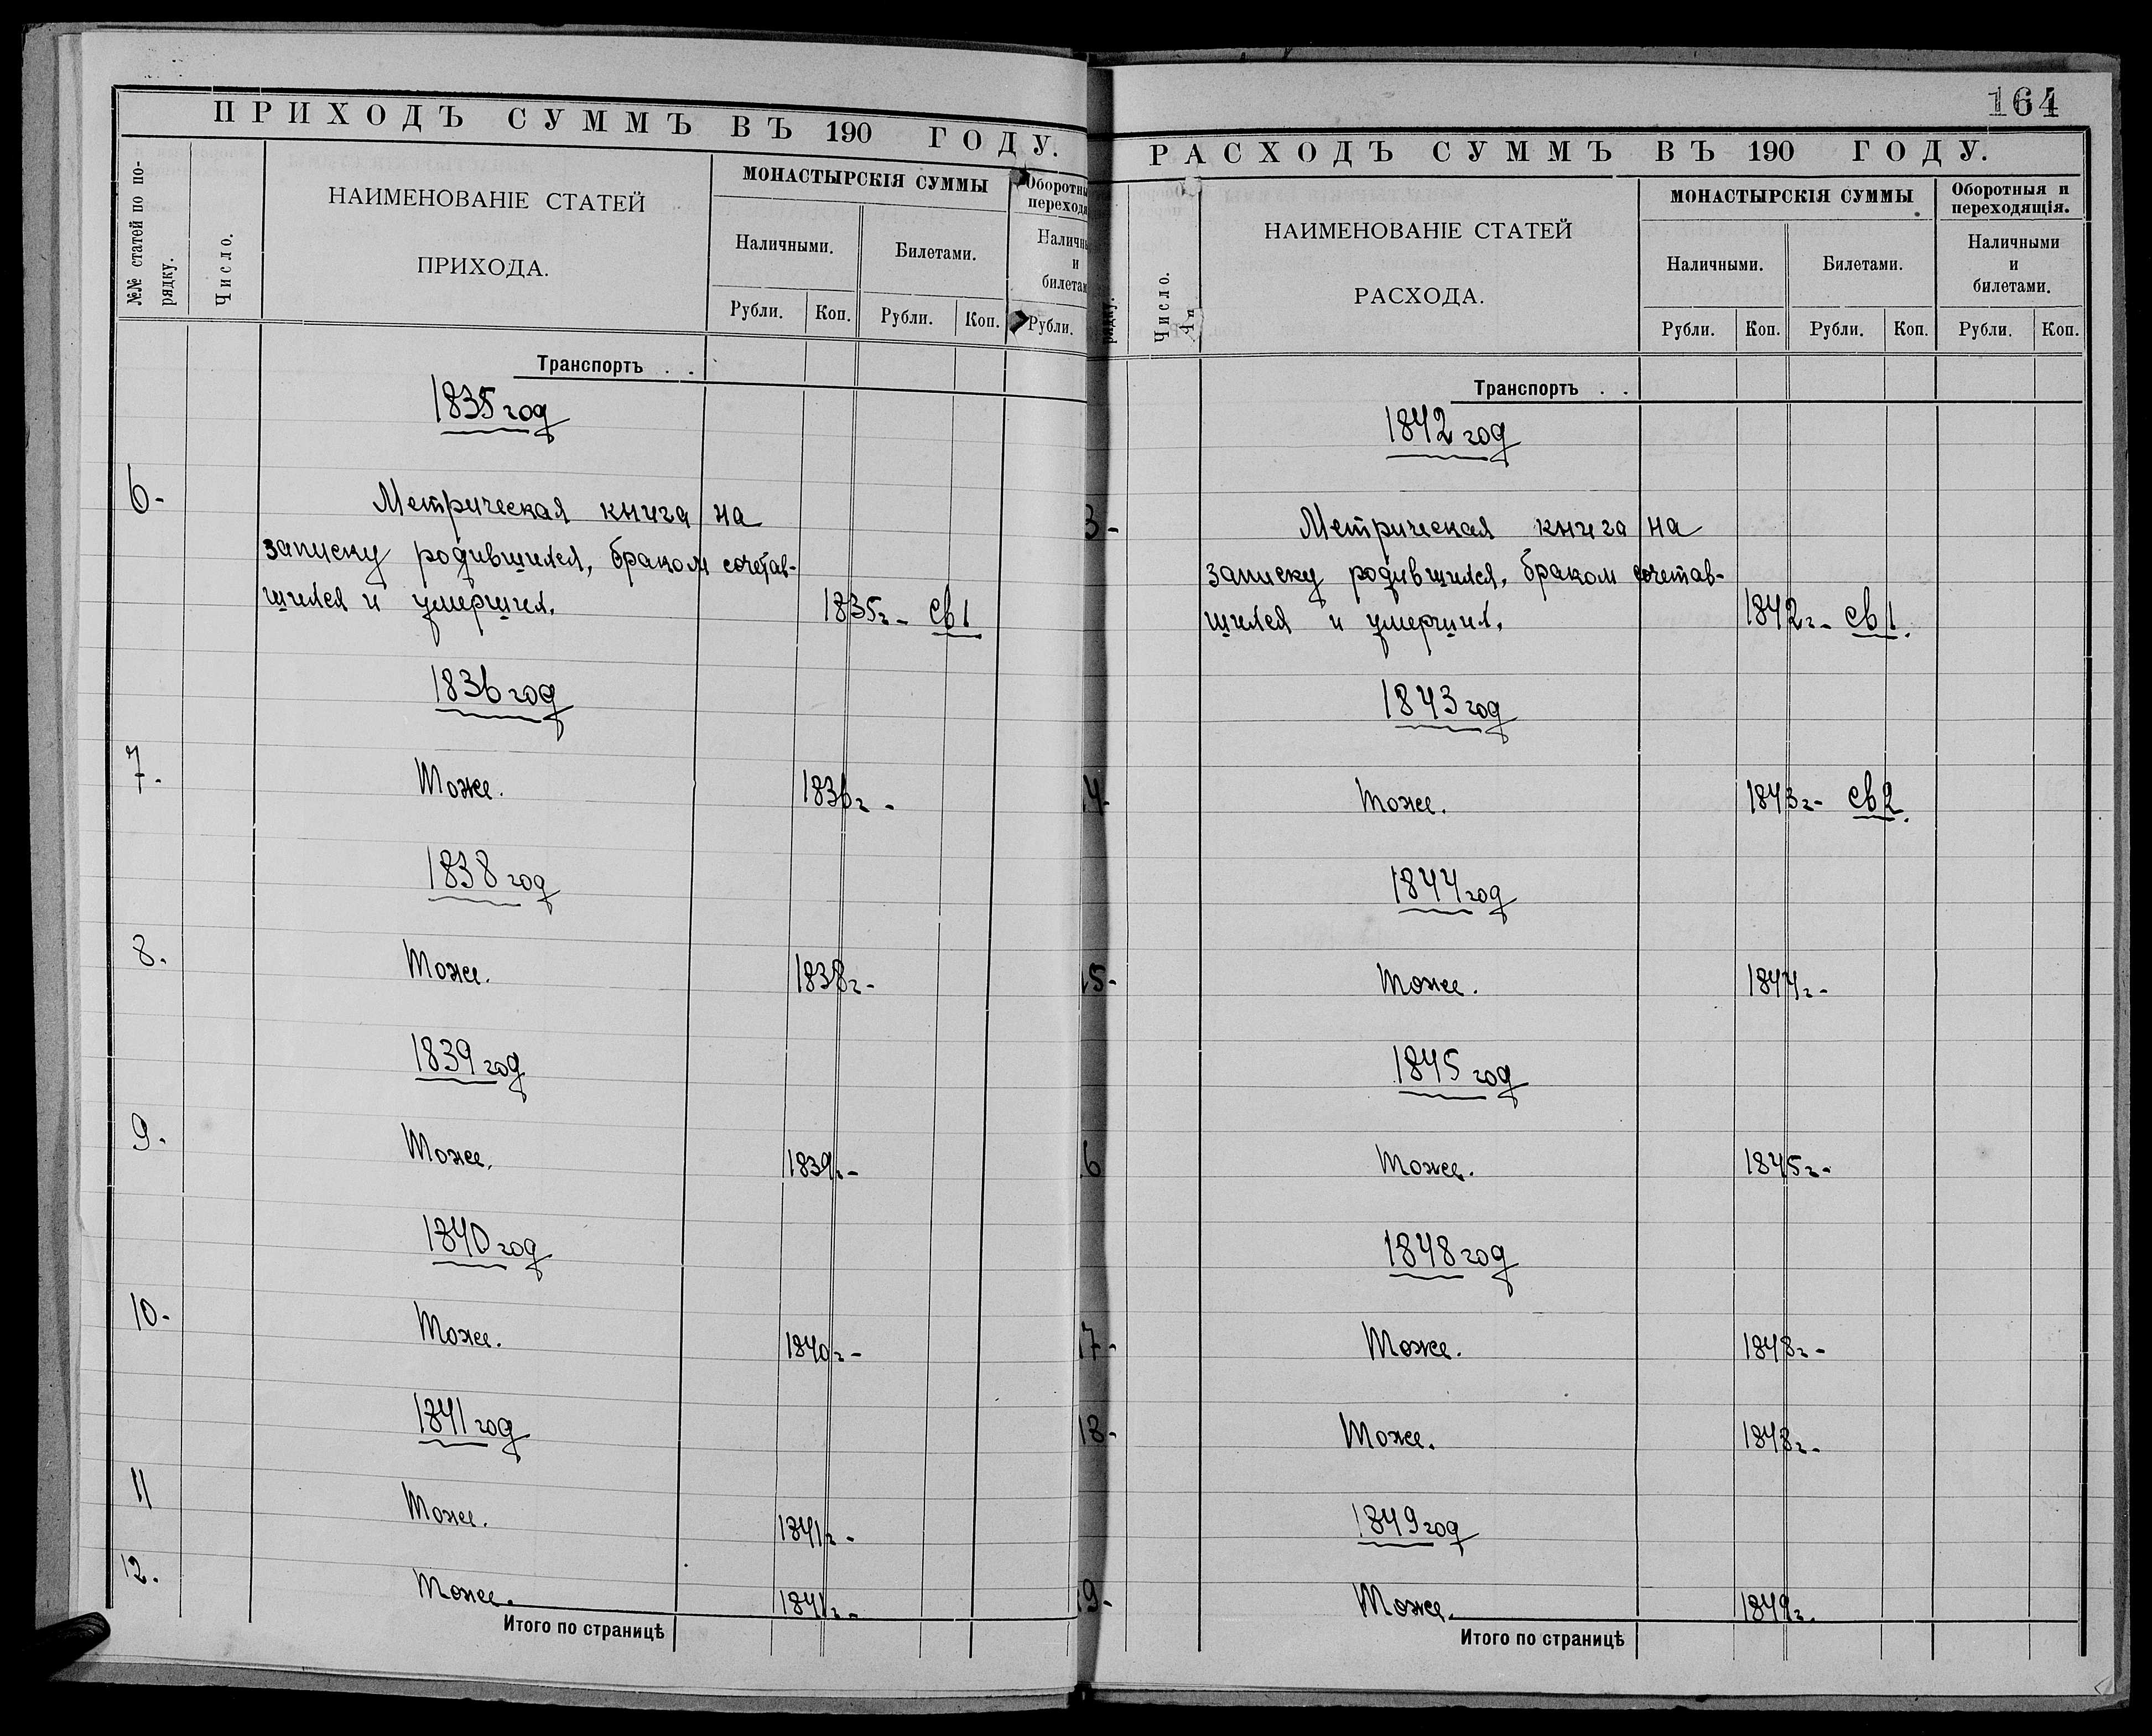 ПРИХОДЪ СУММЪ ВЪ 190 ГОДУ.
№№ статей по по-
рядку.
Число.
НАИМЕНОВАНІЕ СТАТЕЙ
ПРИХОДА.
МОНАСТЫРСКІЯ СУММЫ
Наличными.
Билетами.
Рубли.
Коп.
Рубли.
Коп.
Оборотны
переходя
Наличн
и
билетам
Рубли.
Транспортъ . .
1835 год
6- Метрическая книга на
записку родившихся, браком сочетав-
шихся и умерших. 1835г- св 1
1836 год
7. Тоже. 1836г-
1838 год
8. Тоже. 1838г-
1839 год
9. Тоже. 1839г-
1840 год
10- Тоже. 1840г-
1841 год
11 Тоже. 1841г-
12. Тоже. 1841г-
Итого по страницѣ
164
РАСХОДЪ СУММЪ ВЪ 190 ГОДУ.
рядку.
Число.
НАИМЕНОВАНІЕ СТАТЕЙ
РАСХОДА.
МОНАСТЫРСКІЯ СУММЫ
Наличными.
Билетами.
Рубли.
Коп.
Рубли.
Коп.
Оборотныя и
переходящія.
Наличными
и
билетами.
Рубли.
Коп.
Транспортъ . .
1842 год
3- Метрическая книга на
записку родившихся, браком сочетав-
шихся и умерших. 1842г- св 1.
1843 год
4- Тоже. 1843г- св 2.
1844 год
15- Тоже. 1844г-
1845 год
6 Тоже. 1845г-
1848 год
17- Тоже. 1848г-
18- Тоже. 1848г-
1849 год
9- Тоже. 1849г.
Итого по страницѣ